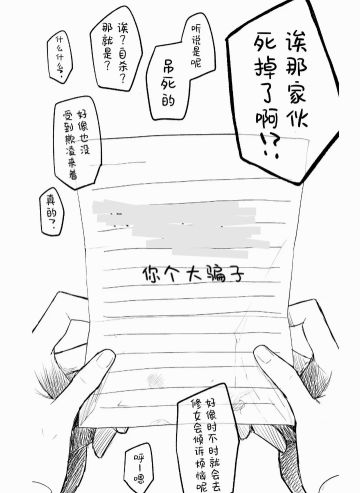 诶那家伙
死掉了啊!?
听说是呢
吊死的
诶?自杀?
那就是?
什么什么?
好像也没
受到欺凌来着
真的?
你个大骗子
好像时不时就会去
修女会倾诉烦恼呢
呼一嗯